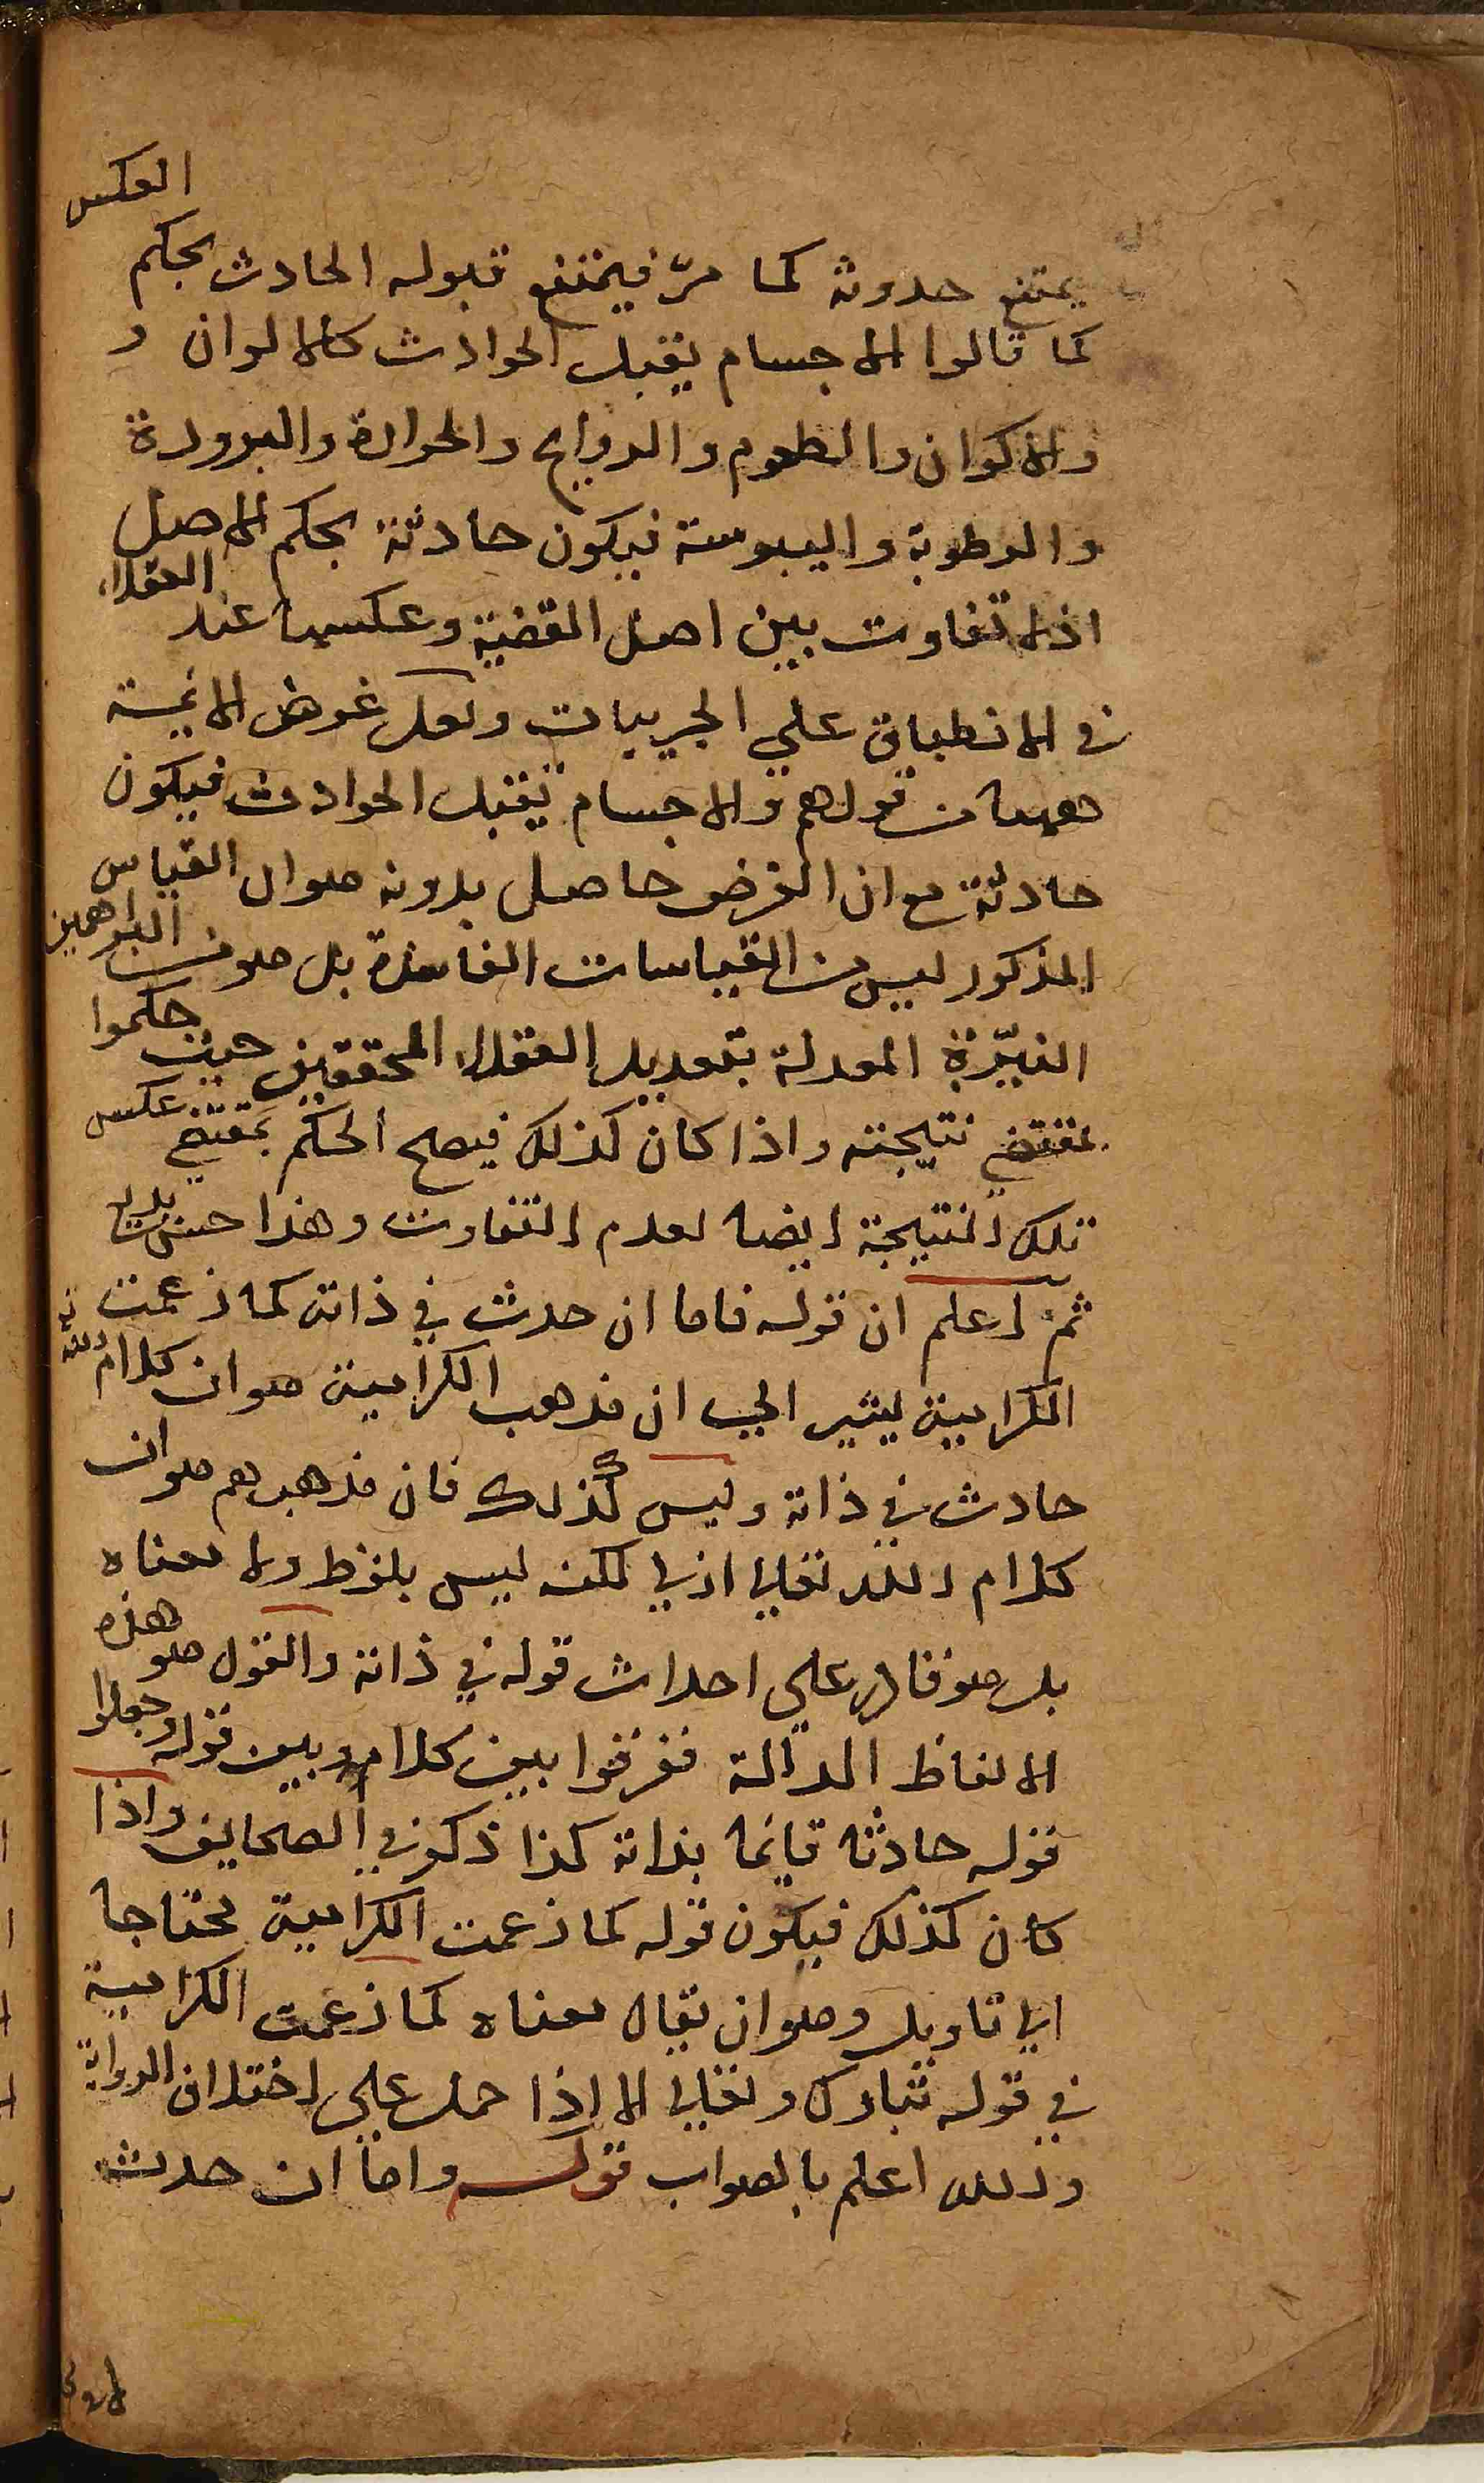 يمتنع حدوثه كما مرّ فيمتنع قبوله الحادث بحكم العكس
كما قالوا الاجسام يقبل الحوادث كالالوان و
والاكوان والطعوم والروايح والحرارة والبرودة
والرطوبة واليبوسة فيكون حادثة بحكم الاصل
اذ لا تفاوت بين اصل القضية وعكسها عند العقلاء
في الانطباق علي الجزييات ولعل غرض الائمة
ههنا من قولهم والاجسام يقبل الحوادث فيكون
حادثة مع ان الغرض حاصل بدونه هو ان القياس
المذكور ليس من القياسات الفاسدة بل هو من البراهين
النيّرة المعدلة بتعديل العقلاء المحققين حيث حكموا
بمقتضي نتيجته واذا كان كذلك فيصح الحكم بمقتضي عكس
تلك النتيجة ايضا لعدم التفاوت وهذا حسن
ثمّ اعلم ان قوله فاما ان حدث في ذاته كما زعمت
الكرامية يشير الي ان مذهب الكرامية هو ان كلام الله
حادث في ذاته وليس كذلك فان مذهبهم هو ان
كلام الله تعالي ازلي لكنه ليس بلفظ ولا معناه
بل هو قادر علي احداث قوله في ذاته والقول هو هذه
الالفاظ الدالة ففرقوا بين كلامه وبين قوله وجعلوا
قوله حادثا قايما بذاته كذا ذكر في الصحايف واذا
كان كذلك فيكون قوله كما زعمت الكرامية محتاجا
الي تاويل وهو ان يقال معناه كما زعمت الكرامية
في قوله تبارك وتعالي الا اذا حمل علي اختلاف الرواية
والله اعلم بالصواب قوله واما ان حدث